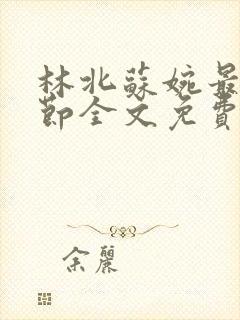 林北蘇婉最
節全文免費
余麗